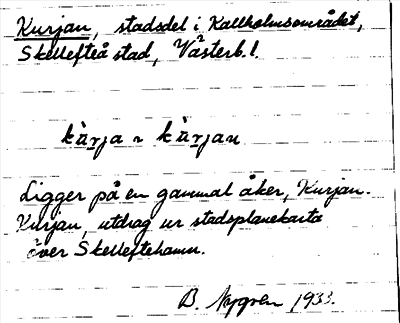 Kurjan, stadsdel i Kallholmsområdet,
Skellefteå stad, Västerb. l.
kùrja ~ kùrjan
Ligger på en gammal åker, Kurjan.
Kurjan, utdrag ur stadsplanekarta
över Skelleftehamn.
B. Nygren 1933.